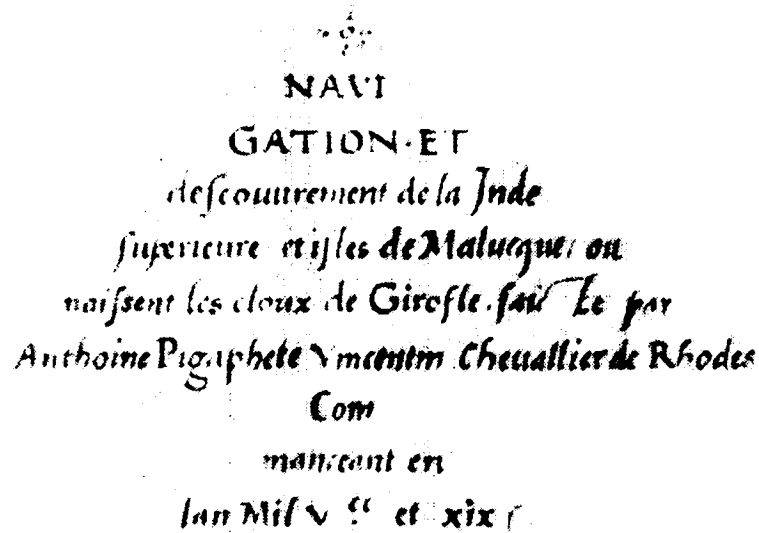 NAVI
GATION·ET
descouurement de la Inde
superieure et isles de Malucque ou
naissent les cloux de Girofle. faicte par
Anthoine Pigaphete Vincentin Cheuallier de Rhodes
Com
manceant en
lan Mil V cc et xix